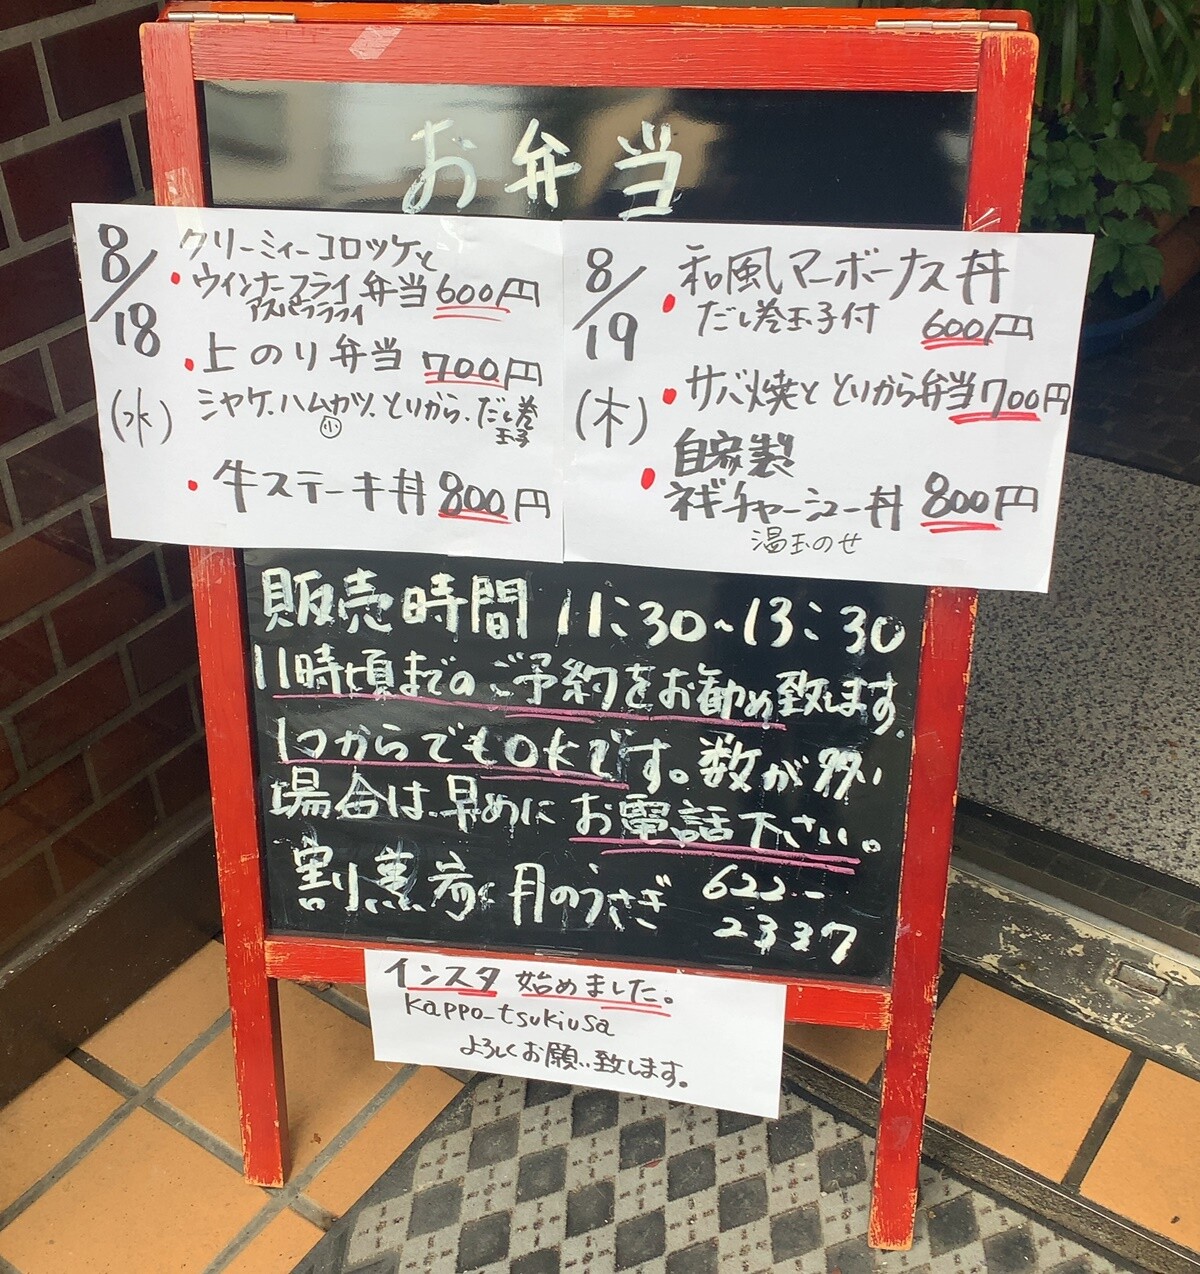 お弁当
8/18
(水)
クリーミィーコロッケと
・ウィンナーフライ弁当600円
アスパラフライ
・上のり弁当 700円
シャケ、ハムカツ、とりから、だし巻
小 玉子
・牛ステーキ丼 800円
8/19
(木)
・和風マーボーナス丼
だし巻玉子付 600円
・サバ焼ととりから弁当700円
自家製
・ネギチャーシュー丼 800円
温玉のせ
販売時間 11:30~13:30
11時頃までのご予約をお勧め致します。
1つからでもOKです。数が多い
場合は、早めにお電話下さい。
割烹 月のうさぎ 622-
2337
インスタ 始めました。
kappo_tsukiusa
よろしくお願い致します。